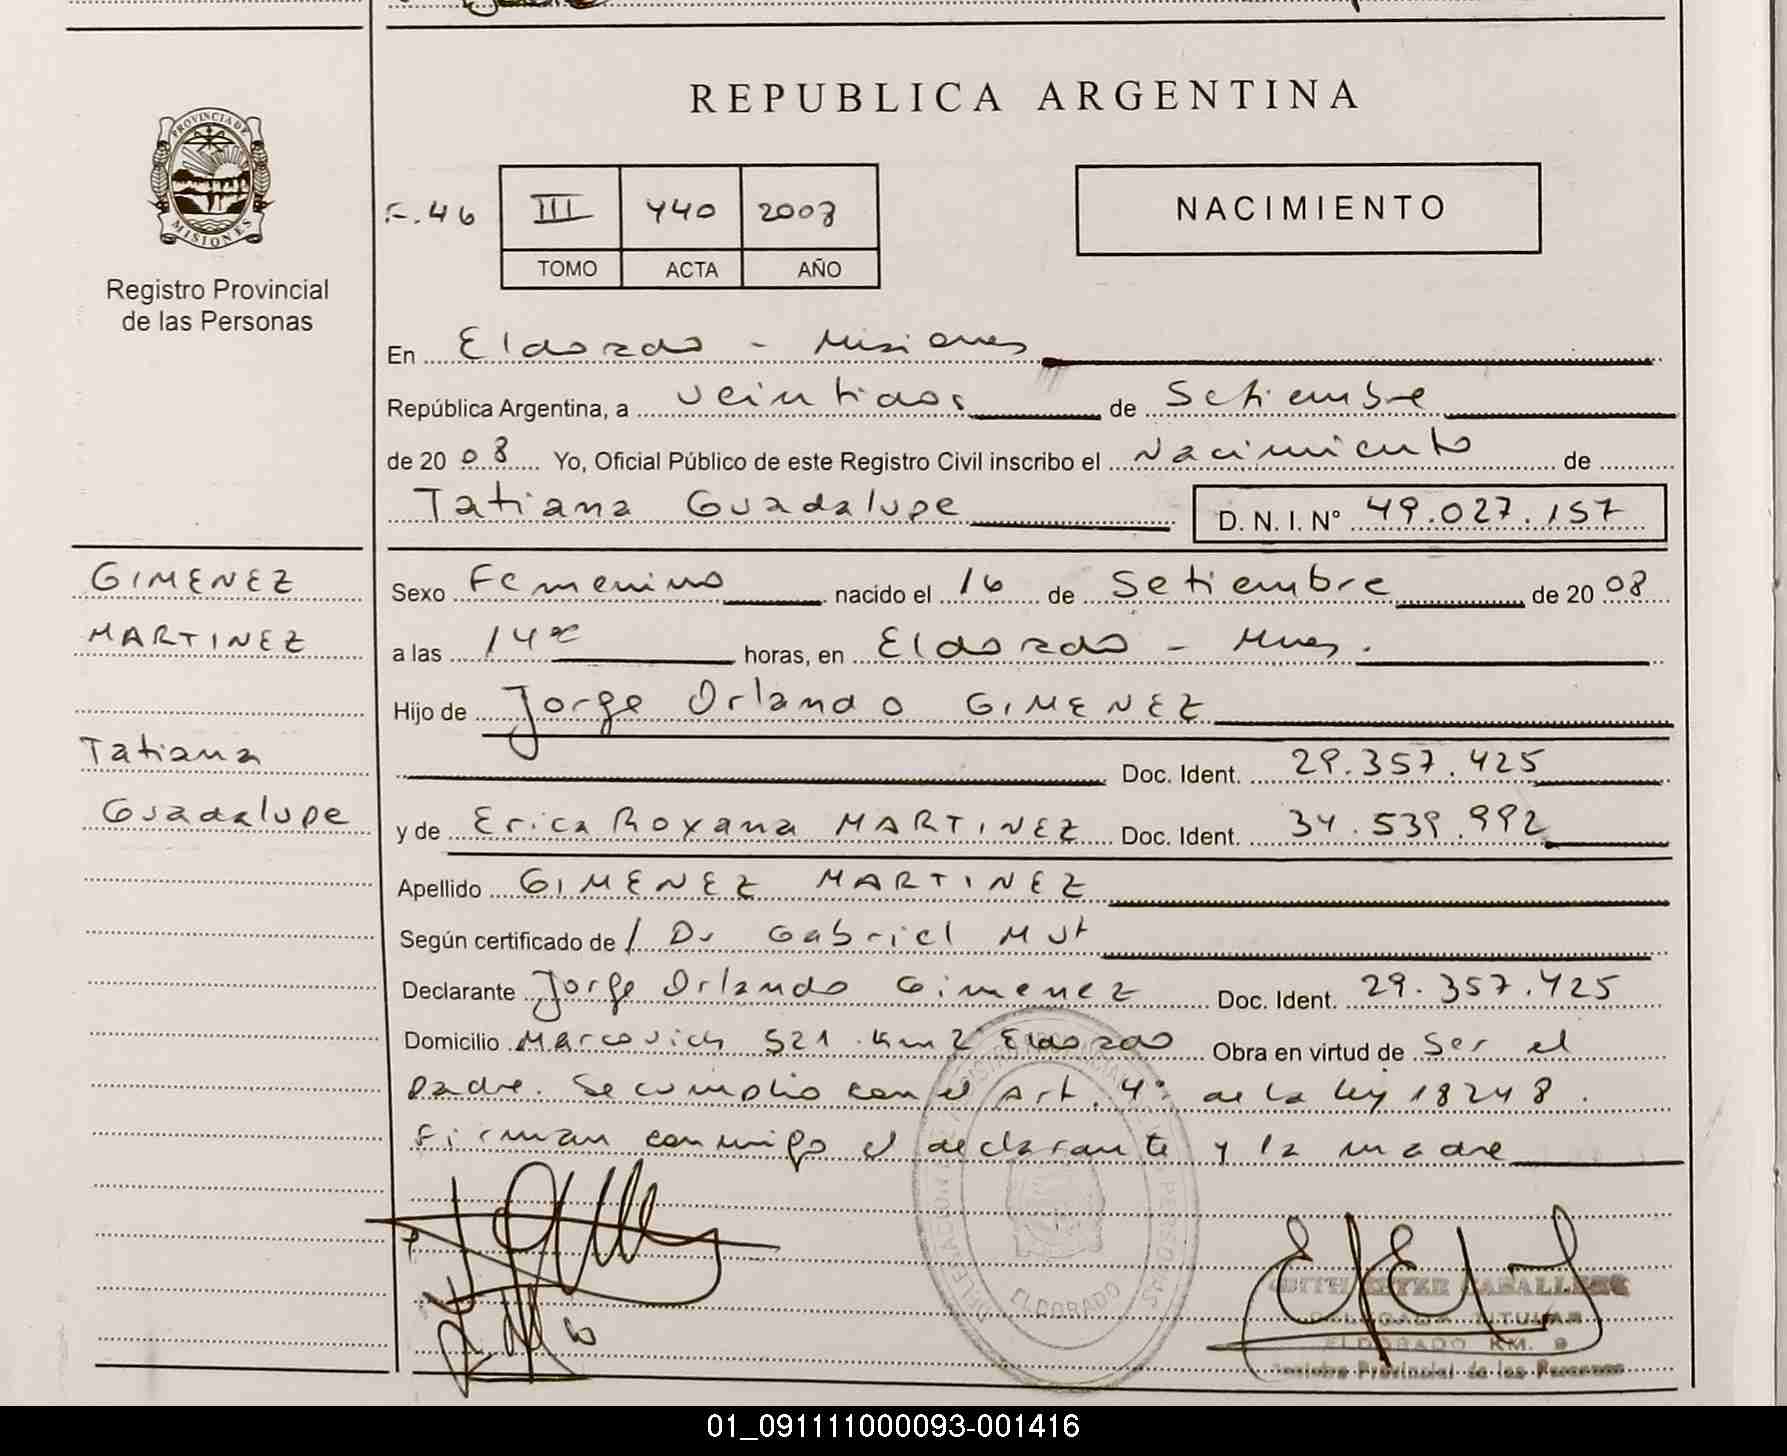 REPUBLICA ARGENTINA
PROVINCIA DE
MISIONES
Registro Provincial
de las Personas
F. 46 III 440 2008
TOMO ACTA AÑO
NACIMIENTO
En Eldorado - Misiones
República Argentina, a veintidos de Setiembre
de 20 08 Yo, Oficial Público de este Registro Civil inscribo el Nacimiento de
Tatiana Guadalupe D. N. I. Nº 49.027.157
GIMENEZ
MARTINEZ
Tatiana
Guadalupe
Sexo Femenino nacido el 16 de Setiembre de 20 08
a las 14 horas, en Eldorado - Mnes.
Hijo de Jorge Orlando GIMENEZ
Doc. Ident. 29.357.425
y de Erica Roxana MARTINEZ Doc. Ident. 34.539.992
Apellido GIMENEZ MARTINEZ
Según certificado de / Dr Gabriel Mut
Declarante Jorge Orlando Gimenez Doc. Ident. 29.357.425
Domicilio Marcovich 521 Km 2 Eldorado Obra en virtud de Ser el
padre. Se cumplio con el Art. 4° de la ley 18248.
Firman conmigo el declarante y la madre
ELDORADO
CABALLERO
TITULAR
ELDORADO KM. 9
Registro Provincial de las Personas
01_091111000093-001416